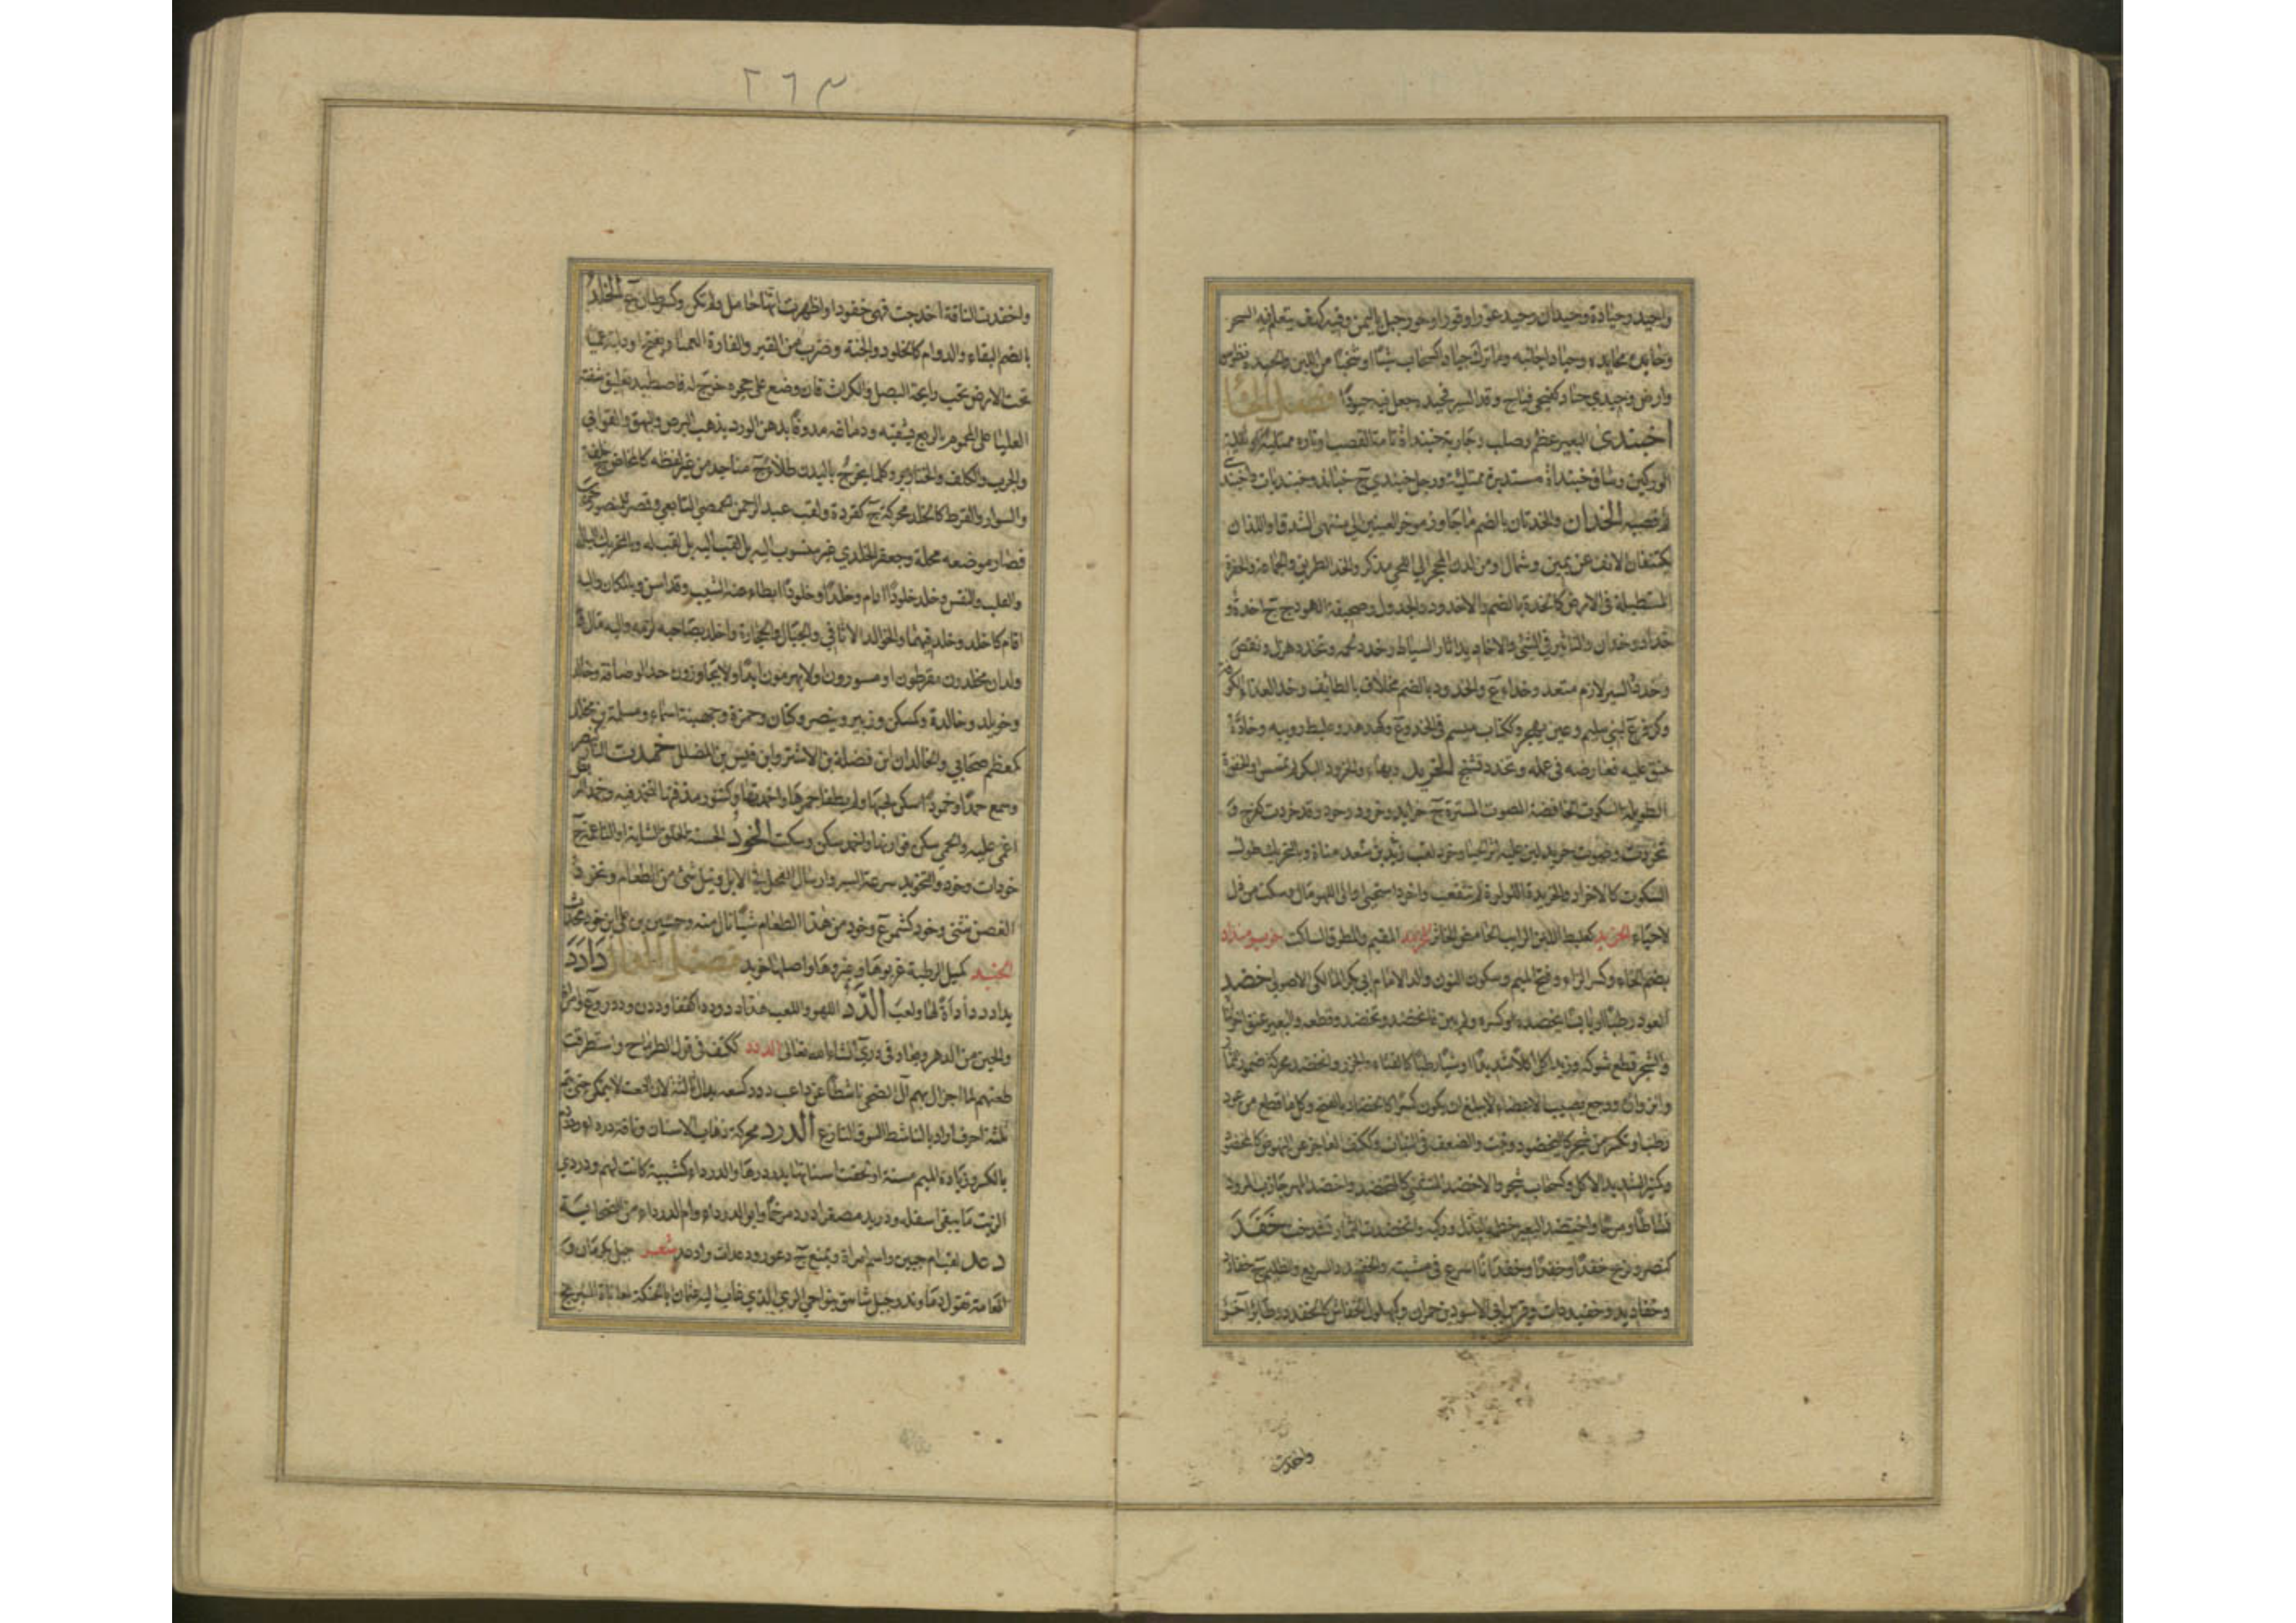 واحيد وحيادة وحيدان وحيد عور او قور او حور جبل باليمن وفيه كهف يتعلم فيه السحر
وحايده محايدة وحيادا جانبه وما ترك حيادا كسحاب شيئا او شخبا من اللبن والحيدة نظر سوء
وارض وحيدي حياد كفيحي فياح وقد السير فحيده جعل فيه حيودا فصل الخا
اخبندى البعير عظم وصلب وجارية خبنداة تامة القصب او تارة ممتلئة او ثقيلة
الوركين وساق خبنداة مستديرة ممتلئة ورجل خبندي ج خباند وخبنديات واخبند
قصبه الخدان والخدتان بالضم ما جاوز مؤخر العينين الى منتهى الشدق او اللذان
يكتنفان الانف عن يمين وشمال او من لدن المحجر الى اللحي مذكر والخد الطريق والجماعة والحفرة
المستطيلة في الارض كالخدة بالضم والاخدود والجدول وصحيفة الهودج ج اخدة و
خداد وخدان والتاثير في الشئ والاخاديد اثار السياط وخدد لحمه وتخدد هزل ونقص
وخدده السير لازم متعد وخداء ع والخدود بالضم مخلاف بالطائف وخد العذراء الكوفة
وكزفر ع لبني سليم وعين بهجر وككتاب ميسم في الخد و ع وكهدهد وعلبط دويبه وخاده
حنق عليه فعارضه في عمله وتخدد تشنج الخريد وبهاء والخرود البكر لم تمسس او الخفرة
الطويلة السكوت الخافضة الصوت المتسترة ج خرايد وخرد وخرد وقد خردت كفرح و
تخردت وصوت خريد لين عليه اثر الحيا وخرد لقب زيد بن سعد مناة وبالتحريك طول
السكوت كالاخراد والخريدة اللؤلؤة لم تثقب واخرد استحيى والى اللهو مال وسكت من ذل
لاحياء الخربد كعلبط اللبن الرايب الحامض الخاثر الخرمد المقيم والمطرق الساكت خرميمنداد
بضم الخاء وكسر الراء وفتح الميم وسكون النون والد الامام ابي بكر المالكي الاصولي خضد
العود رطبا او يابسا يخضده كسره ولم يبن فانخضد وتخضد وقطعه والبعير عنق اخر
والشجر قطع شوكه وزيد اكل اكلا شديدا او شيئا رطبا كالقثاء والجزر والخضد محركة ضمور الثمار
وانزواؤه ووجع يصيب الاعضاء لا يبلغ ان يكون كسرا كالخضاد بالفتح وكل ما قطع من عود
رطب او تكسر من شجر كاليخضود ونبت والضعف في النبات وككتف العاجز عن النهوض كالمخضد
وكمنبر الشديد الاكل وكسحاب شجر والاخضد المتثني كالمتخضد واخضد المهر جاذب المرود
نشاطا ومرحا واختضد البعير خطمه ليذل وركبه وانخضدت الثمار تشدخت خفد
كنصر وفرح خفدا وخفدا وخفدانا اسرع في مشيته والخفيدد السريع والظليم ج خفادد
وخفاديد وخفيددات وفرس ابي الاسود بن حمران وكبهلول الخفاش كالخفدد وطائر آخر
واخفدت
٢٦٣
واخفدت الناقة اخدجت فهي خفود او اظهرت انها حامل ولم تكن وكسرطان ع الخلد
بالضم البقاء والدوام كالخلود والجنة وضرب من القبر والفارة العميا ويفتح او دابة عميا
تحت الارض تحب رايحة البصل والكراث فان وضع على جحره خرج له فاصطيد تعليق شفته
العليا على المحموم بالربع يشفيه ودماغه مدوفا بدهن الورد يذهب البرص والبهق والقوابي
والجرب والكلف والخنازير وكلما يخرج بالبدن طلاء ج مناجذ من غير لفظه كالمخاض ج خلفة
والسوار والقرط كالخلد محركة ج كقردة ولقب عبد الرحمن الحمصي التابعي وقصر للمنصور خرب
فصار موضعه محلة وجعفر الخلدي غير منسوب اليه بل لقب اليه بل لقب له وبالتحريك البال
والقلب والنفس وخلد خلودا دام وخلدا وخلودا ابطاء عنه الشيب وقد اسن وبالمكان واليه
اقام كاخلد وخلد فيهما والخوالد الاثافي والجبال والحجارة واخلد بصاحبه لزمه واليه مال و
ولدان مخلدون مقرطون او مسورون او لا يهرمون ابدا ولا يتجاوزون حد الوصافة وخالد
وخويلد وخالدة وكمسكن وزبير وينصر وكتان وحمزة وجهينة اسماء ومسلمة بن مخلد
كمعظم صحابي والخالدان ابن نضلة بن الاشتر وابن قيس بن المضلل خمدت النار كنصر
وسمع خمدا وخمودا سكن لهبها ولم يطفا جمرها واخمدتها وكتنور مدفنها لتخمد فيه وخمد المريض
اغمي عليه والحمى سكن فورانها واخمد سكن وسكت الخود الحسنة الخلق الشابة او الناعمة ج
خودات وخود والتخويد سرعة السير وارسال الفحل في الابل ونيل شئ من الطعام وتخود
الغصن تثنى وخود كشمر ع وخود من هذا الطعام شيئا نال منه وحسين بن علي ابن خود محدث
الخيد كميل الرطبة عربوها وغيروها واصلها خويد فصل الدال دادد
يدادد دادأة لها ولعب الدد اللهو واللعب هذا دد وددا كقفا وددن وددد و ع وامراة
والحين من الدهر ويعاد في دي ان شاء الله تعالى الددد ككتف في قول الطرماح واستطرقت
ظعنهم لما احزال بهم آل الضحى ناشطا من داعب ددد كسعه بدال ثالثة لان النعت لا يتمكن حتى يتم
ثلثة احرف اراد بالناشط الشوق النازع الدرد محركة ذهاب الاسنان وناقة درداء ودردم
بالكسر وزيادة الميم مسنة او لحقت اسنانها بدردرها والدرداء كتيبة كانت لهم ودردي
الزيت ما يبقى اسفله ودريد مصغر ادرد مرخما وابو الدرداء وام الدرداء من الصحابة
دعد لقب ام حبين واسم امراة ويمنع ج دعود ودعدات وادعد جبل بكرمان و
العامة تقول دماوند وجبل شاهق بنواحي الري الذي